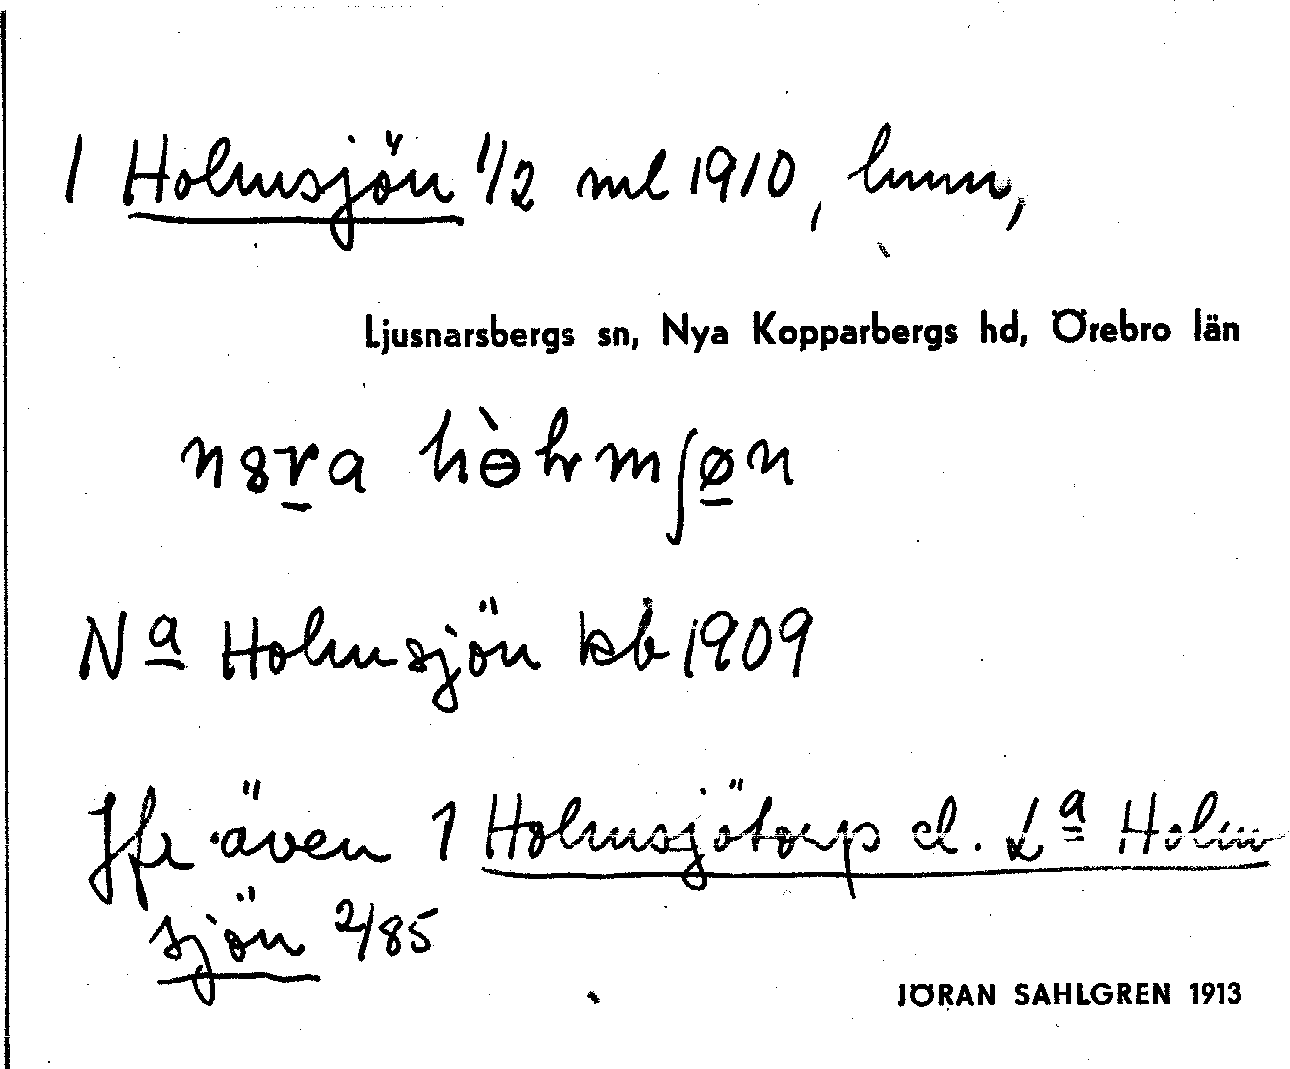 1 Holmsjön 1/2 ml 1910, hmn,
Ljusnarsbergs sn, Nya Kopparbergs hd, Örebro län
Nª Holmsjön kb 1909
Jfr även 1 Holmsjötorp el. Lª Holm
sjön 2/85
JÖRAN SAHLGREN 1913